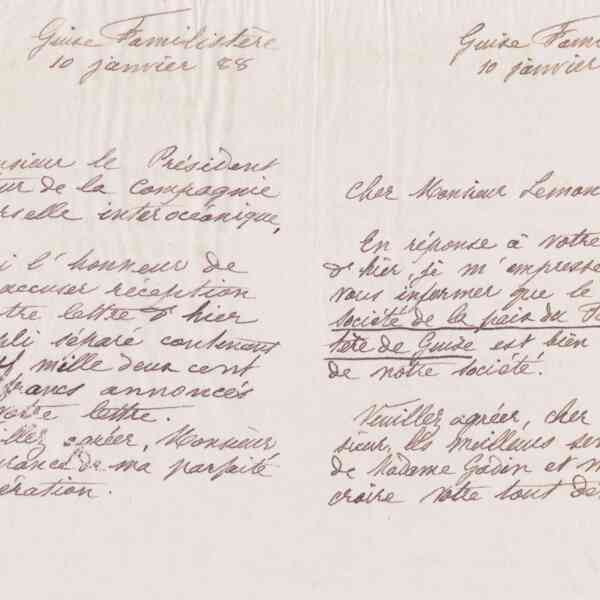 Guise Familistère
10 janvier 88
nsieur le Président
ur de la Compagnie
rselle interocéanique,
i l'honneur de
accuser réception
tre lettre d'hier
pli séparé contenant
mille deux cent
francs annoncés
lettre.
illez agréer, Monsieur
de ma parfaite
ération.
Guise Fami
10 janvier
Cher Monsieur Lemon
En réponse à votre
d'hier, je m'empresse
vous informer que le
société de la paix du
tère de Guise est bien
de notre société.
Veuillez agréer, cher
sieur, les meilleurs sen
de Madame Godin et m
croire votre tout dé